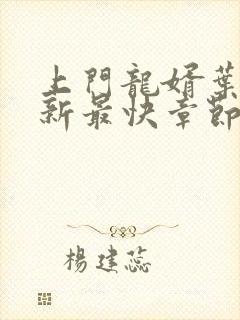 上門龍婿葉
新最快章節
楊建蕊